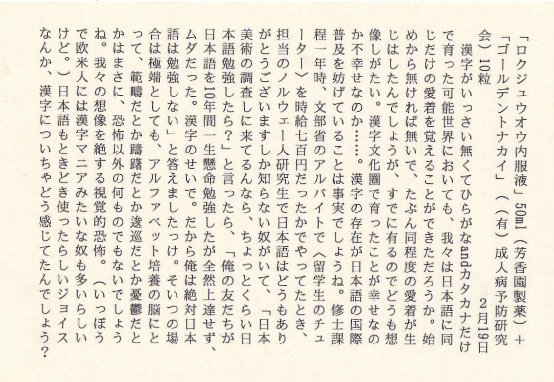 「ロクジュウオウ内服液」50ml(芳香園製薬)+
「ゴールデントナカイ」((有)成人病予防研究
会)10粒 2月19日
漢字がいっさい無くてひらがなandカタカナだけ
で育った可能世界においても、我々は日本語に同
じだけの愛着を覚えることができただろうか。始
めから無ければ無いで、たぶん同程度の愛着が生
じはしたんでしょうが、すでに有るのでどうも想
像しがたい。漢字文化圏で育ったことが幸せなの
か不幸せなのか……。漢字の存在が日本語の国際
普及を妨げていることは事実でしょうね。修士課
程一年時、文部省のアルバイトで〈留学生のチュ
ーター〉を時給七百円だったかでやってたとき、
担当のノルウェー人研究生で日本語はどうもあり
がとうございますしか知らない奴がいて、「日本
美術の調査しに来てるんなら、ちょっとくらい日
本語勉強したら?」と言ったら、「俺の友だちが
日本語を10年間一生懸命勉強したが全然上達せず、
ムダだった。漢字のせいで。だから俺は絶対日本
語は勉強しない」と答えましたっけ。そいつの場
合は極端としても、アルファベット培養の脳にと
って、範疇だとか躊躇だとか逡巡だとか憂鬱だと
かはまさに、恐怖以外の何ものでもないでしょう
ね。我々の想像を絶する視覚的恐怖。(いっぽう
で欧米人には漢字マニアみたいな奴も多いらしい
けど。)日本語もときどき使ったらしいジョイス
なんか、漢字についちゃどう感じてたんでしょう?